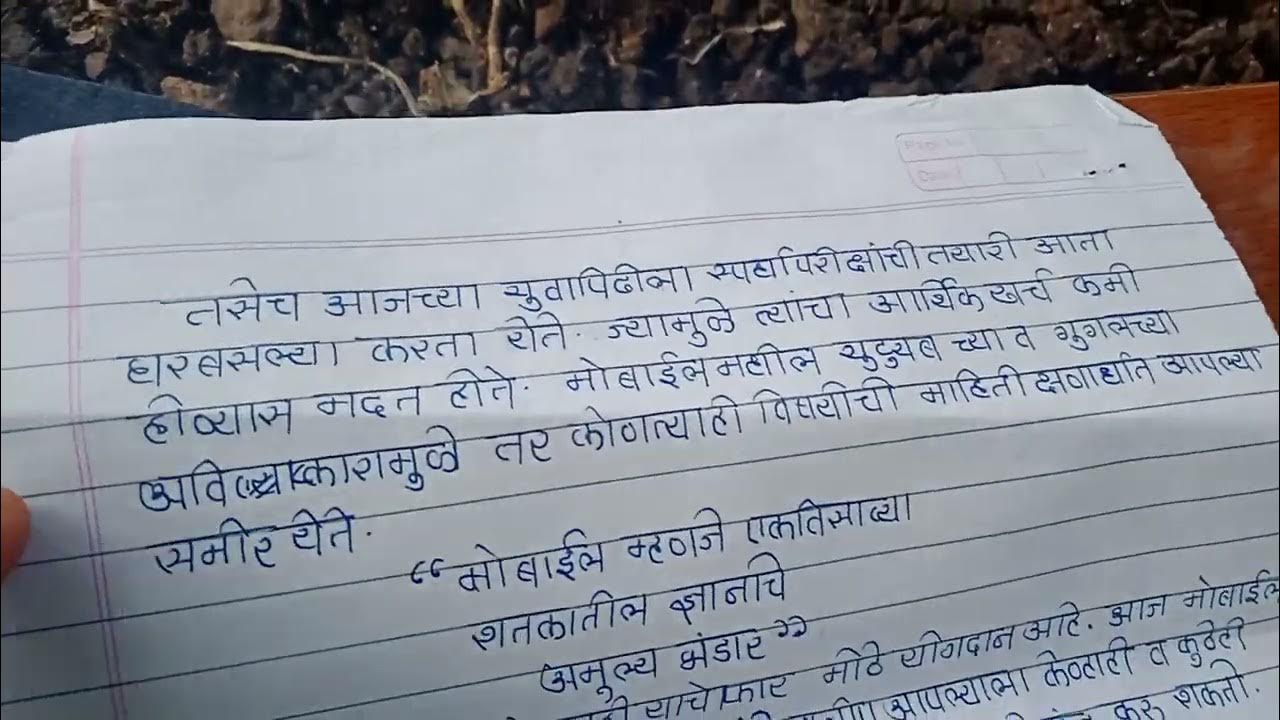 Page No.
Date
तसेच आजच्या युवापिढीला स्पर्धापरीक्षांची तयारी आता
घरबसल्या करता येते. ज्यामुळे त्यांचा आर्थिक खर्च कमी
होण्यास मदत होते. मोबाईलमधील युटुयब च्या व गुगलच्या
अविष्कारामुळे तर कोणत्याही विषयाची माहिती क्षणार्धात आपल्या
समोर येते.
"मोबाईल म्हणजे एकविसाव्या
शतकातील ज्ञानाचे
अमूल्य भंडार"
याचे फार मोठे योगदान आहे. आज मोबाईल
आपल्याला केव्हाही व कुठेही
करू शकतो.